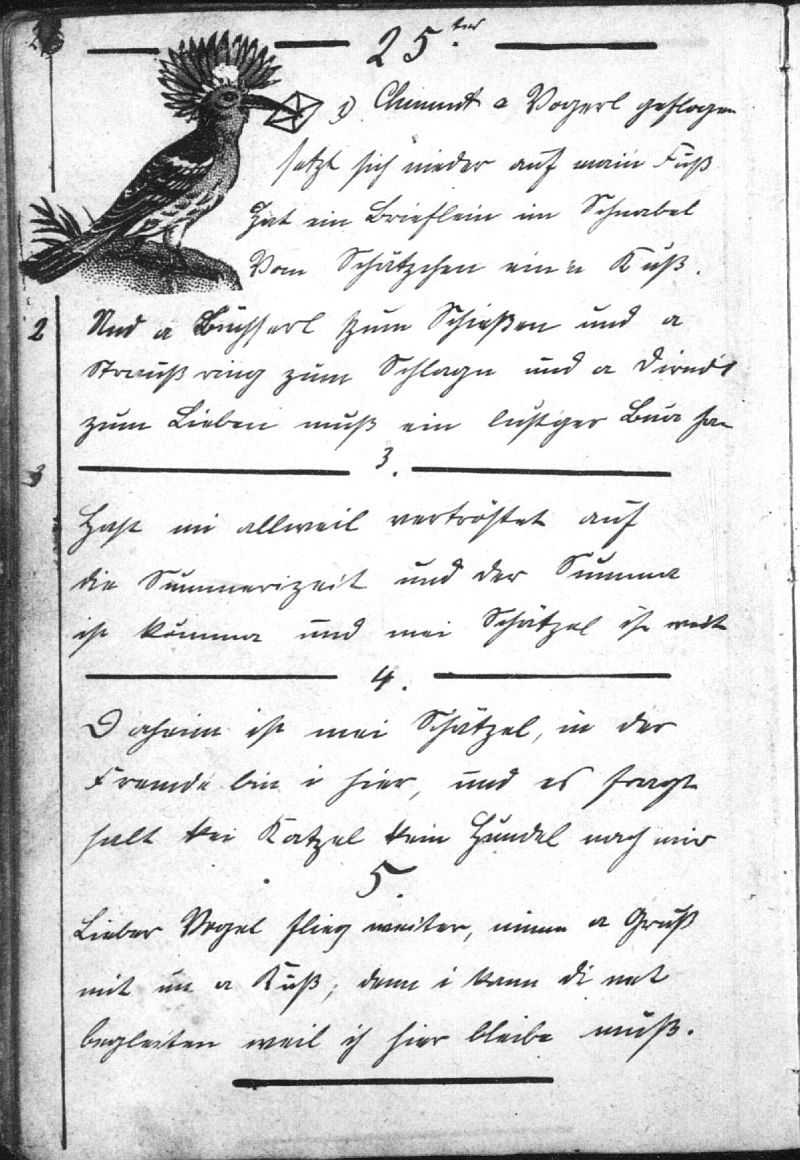 25.ter
1) Chimmt a Vogerl geflogen
setzt sich nieder auf mein Fuß
Hat ein Brieflein im Schnabel
Vom Schätzchen ein'n Kuß.
2 Und a Büchserl zum Schießen und a
Straußring zum Schlagn und a Dirndl
zum Lieben muß ein lustger Bua ha
3 3.
Hast mi allweil vertröstet auf
die Summerizeit und der Summa
ist komma und mei Schätzel ist weit
4.
Daheim ist mei Schätzel, in der
Fremde bin i hier, und es fragt
halt kei Katzel kein Hundel nach mir
5.
Lieber Vogel flieg weiter, nimm a Gruß
mit un a Kuß, denn i kann di net
begleiten weil ich hier bleibe muß.